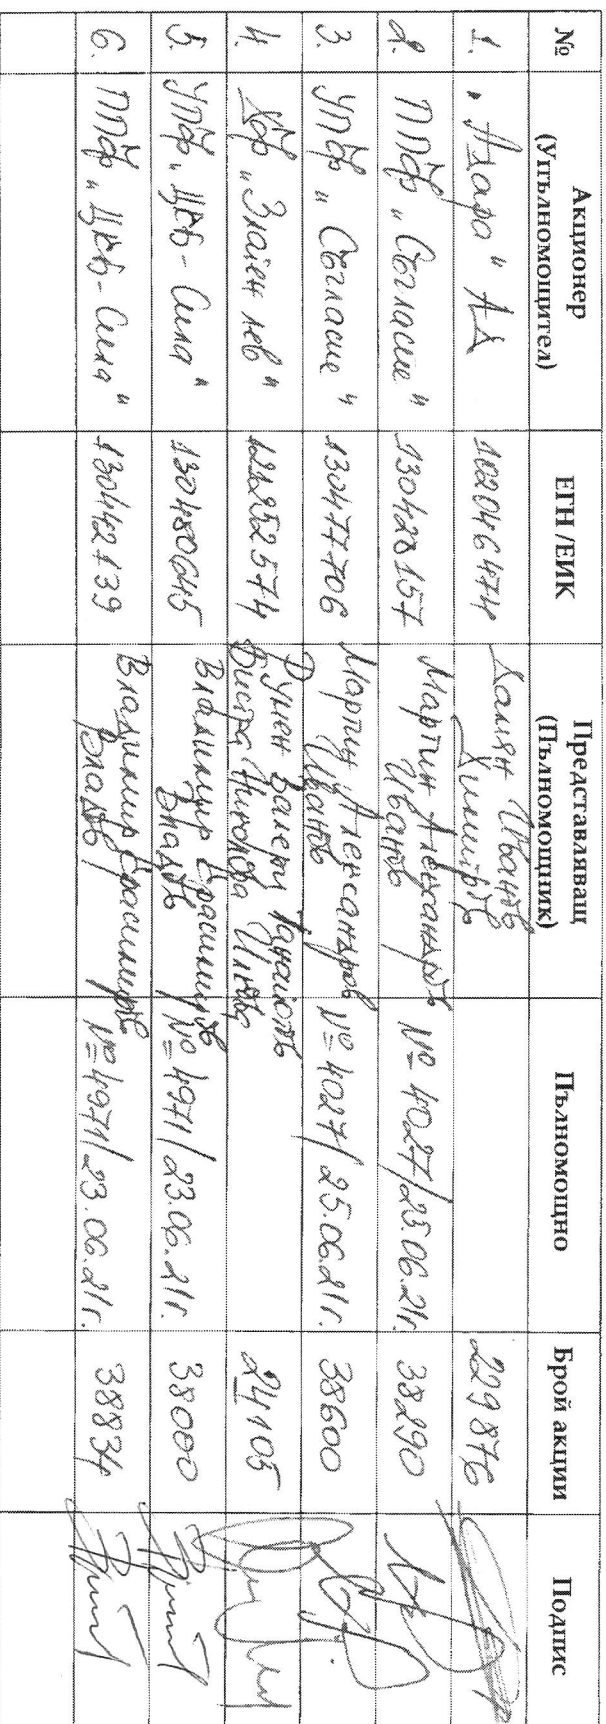 № Акционер (Упълномощител) ЕГН /ЕИК Представляващ (Пълномощник) Пълномощно Брой акции Подпис
1. "Адара" АД 102046474 Дамян Иванов Димитров 229876
2. ППФ „Съгласие" 130428157 Мартин Александров Иванов № 4027/25.06.21г. 38290
3. УПФ „Съгласие" 130477706 Мартин Александров Иванов № 4027/25.06.21г. 38600
4. ДФ „Златен лев" 121252574 Румен Валери Панайотов Бистра Николова Илкова 24105
5. УПФ „ЦКБ - Сила" 130480645 Владимир Красимиров Владов № 4971/23.06.21г. 38000
6. ППФ „ЦКБ - Сила" 130442139 Владимир Красимиров Владов № 4971/23.06.21г. 38834